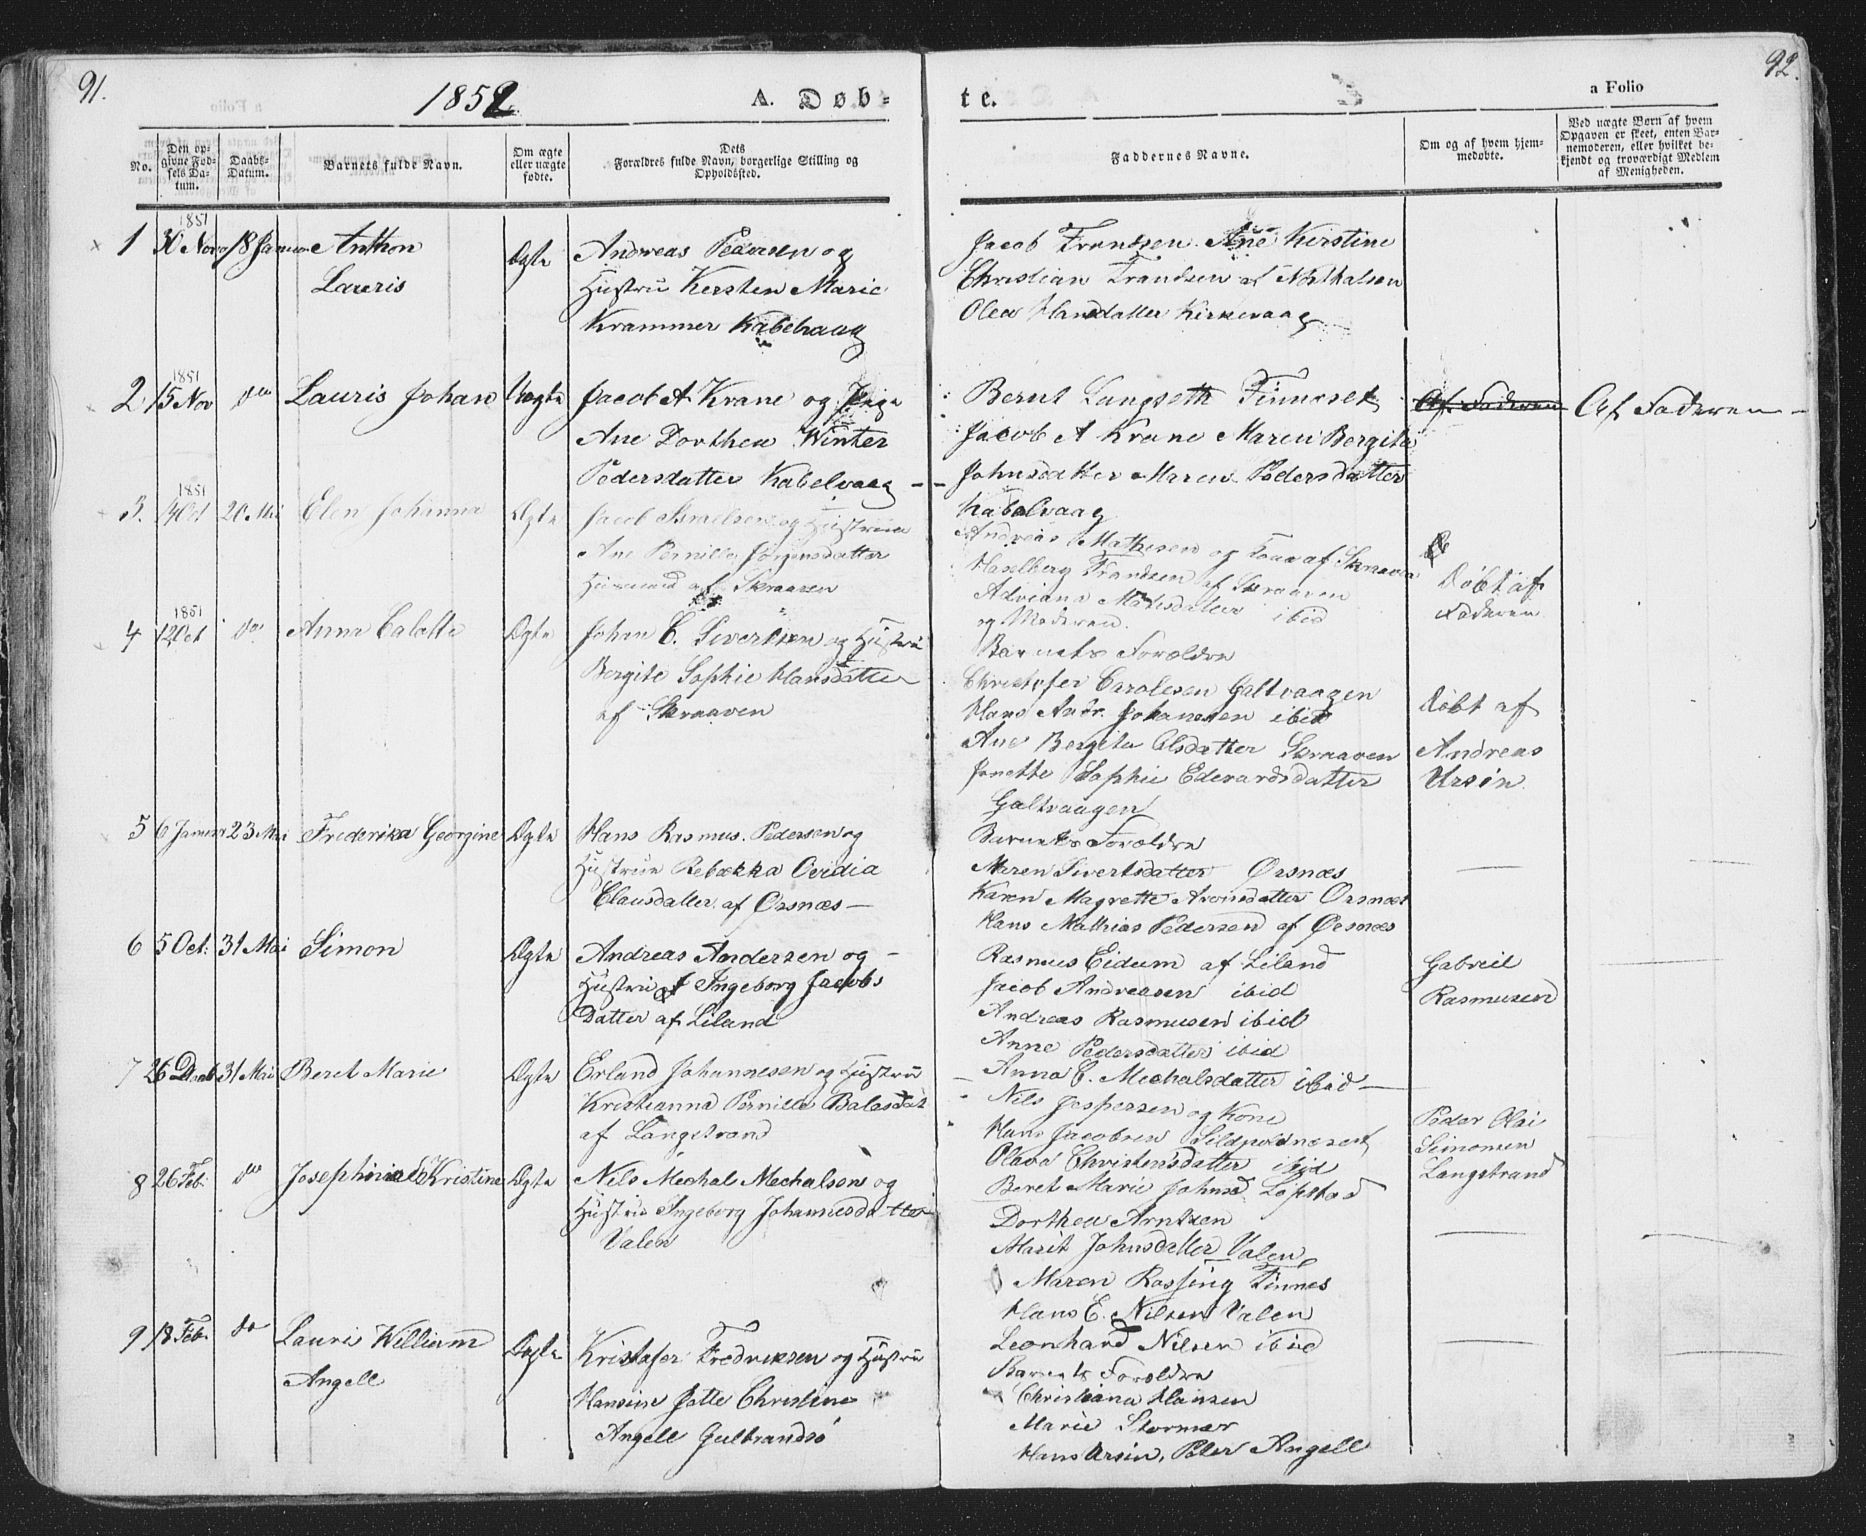 91.
1852
A. Døb-
te.
a Folio
92.
No.
Den opgivne Fødsels Datum.
Daabs-Datum.
Barnets fulde Navn.
Om ægte eller uægte fødte.
Dets Forældres fulde Navn, borgerlige Stilling og Opholdssted.
Faddernes Navne.
Om og af hvem hjemmedøbte.
Ved uægte Børn af hvem Opgaven er skeet, enten Barnemoderen, eller hvilket bekjendt og troværdigt Medlem af Menigheden.
1 1851 30 Nov 18 Januar Anthon Ægte Andreas Pedersen og
Lauris Hustru Kersten Marie
Krammer Kabelvaag
Jacob Frandsen Ane Kerstine
Christian Frandsen af
Olea Hansdatter Kirkevaag
2 1851 15 Nov do Lauris Johan Uægte Jacob A Krane og Pige
Ane Dorthea Winter
Pedersdatter Kabelvaag
Bernt Langseth Finneset
Jacob A Krane Maren Bergite
Johnsdatter Maren Pedersdatter
Kabelvaag
Af Faderen
Af Faderen
3. 1851 Oct 20 Mai Elen Johanna Ægte Jacob Ismelsen og Hustrue
Ane Pernille Jørgensdatter
af Skraaven
Andreas Mathesen og af Skraaven
Haselberg Frandsen af Skraaven
Adriana ibid
og Moderen.
Døbt af
Faderen
4 1851 12 Oct do Anna Calotte Ægte Johan C. Sivertsen og Hustru
Bergite Sophie Hansdatter
af Skraaven
Barnets Forældre
Christofer Carolesen Galtvaagen
Hans Andr. Johanesen ibid
Ane Bergita Olsdatter Skraaven
Janette Sophie Edevardsdatter
Galtvaagen
Døbt af
Andreas
Ursin
5 6 Januar 23 Mai Frederika Georgine Ægte Hans Rasmus Pedersen og
Hustrue Rebækka Ovidia
Clausdatter af Ørsnæs
Barnets Forældre
Maren Sivertsdatter Ørsnæs
Karen Magrette Aronsdatter Ørsnæs
Hans Mathias Pedersen af Ørsnæs
6 5 Oct: 31 Mai Simon Ægte Andreas Andersen og
Hustru Ingeborg Jacobs
Datter af Liland
Rasmus Eidum af Liland
Jacob Andreasen ibid
Andreas Rasmusen ibid
Anne Pedersdatter ibid
Anna E. Mechalsdatter ibid
Gabriel
Rasmusen
7 26 Decb 31 Mai Beret Marie Ægte Erland Johannesen og Hustru
Kristianna Pernille
af Langstrand
Nils Jespersen og Kone
Hans Jacobsen
Olava Christensdatter ibid
Beret Marie Johnsd. Lopstad
Peder Olai
Simonsen
Langstrand
8 26 Feb: do Josephine Kristine Ægte Nils Mechal Mechalsen og
Hustru Ingeborg Johannesdatter
Valen
Dorthea Arntsen
Marit Johnsdatter Valen
Maren Rossing Finnes
Hans E. Nilsen Valen
Leonhard Nilsen ibid
9 18 Feb. do Lauri William Ægte Kristofer Fredriksen og Hustru
Angell Hansine Jotte Christine
Angell Gulbrandsø
Barnets Forældre
Christiana Hansen
Marie Stormer
Hans Ursin, Peter Angell